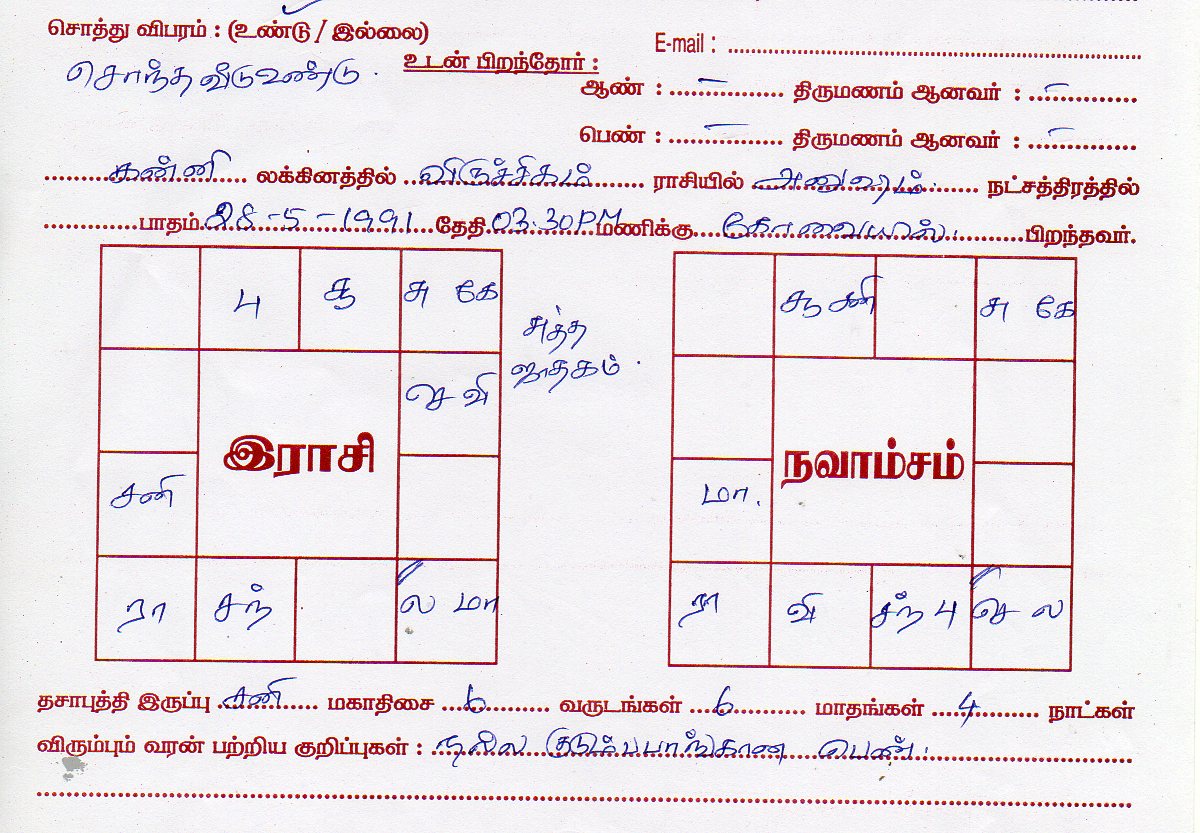 சொத்து விபரம் : (உண்டு / இல்லை)
E-mail : ....................
சொந்த வீடு உண்டு.
உடன் பிறந்தோர் :
ஆண் : – திருமணம் ஆனவர் : –
பெண் : – திருமணம் ஆனவர் : –
கன்னி லக்கினத்தில் விருச்சிகம் ராசியில் அனுஷம். நட்சத்திரத்தில்
பாதம் 28-5-1991 தேதி 03.30PM மணிக்கு கோவையில். பிறந்தவர்.
பு சூ சு கே
சூ சனி சு கே
சுத்த
ஜாதகம்.
செ வி
இராசி
நவாம்சம்
சனி
மா.
ரா சந் ல மா
ரா வி சந் பு செ ல
தசாபுத்தி இருப்பு சனி மகாதிசை 6 வருடங்கள் 6 மாதங்கள் 4 நாட்கள்
விரும்பும் வரன் பற்றிய குறிப்புகள் : நல்ல குடும்பபாங்கான பெண்.